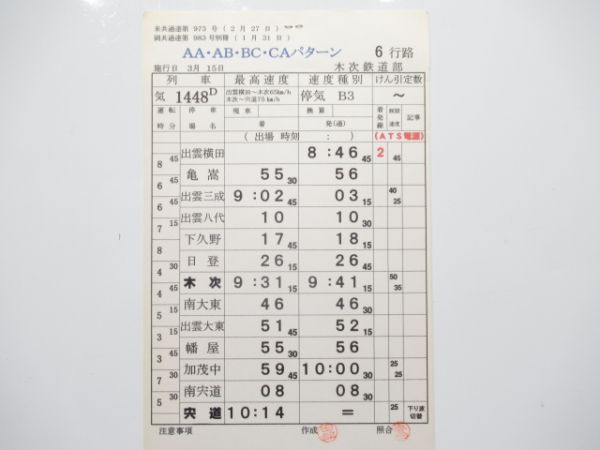 米共通達第 973 号 ( 2 月 27 日 )
岡共通達第 983 号別冊 ( 1 月 31 日 )
AA・AB・BC・CAパターン 6 行路
施行日 3月 15日 木次鉄道部
列 車 最高速度 速度種別 けん引定数
気 1448D 出雲横田～木次65km/h 木次～宍道75km/h 停気 B3 ～
運転 停車 現車 換算 着発線 制限速度 記事
時分 場名 着 発(通)
( 出場 時刻 : ) (ATS電源)
出雲横田 8:46 45 2 45
8 45
亀嵩 55 30 56
6 45
出雲三成 9:02 45 03 15 40 25
6 45
出雲八代 10 10 30
7 15
下久野 17 45 18 15
8
日登 26 15 26 45
4 30
木次 9:31 15 9:41 15 50 35
5 15
南大東 46 30 46 30
5 15
出雲大東 51 45 52 15
3 15
幡屋 55 30 56
3 45
加茂中 59 45 10:00 30 25 25
7 30
南宍道 08 08 30
5 30
宍道 10:14 = 25 下り波切替
注意事項 作成 照合